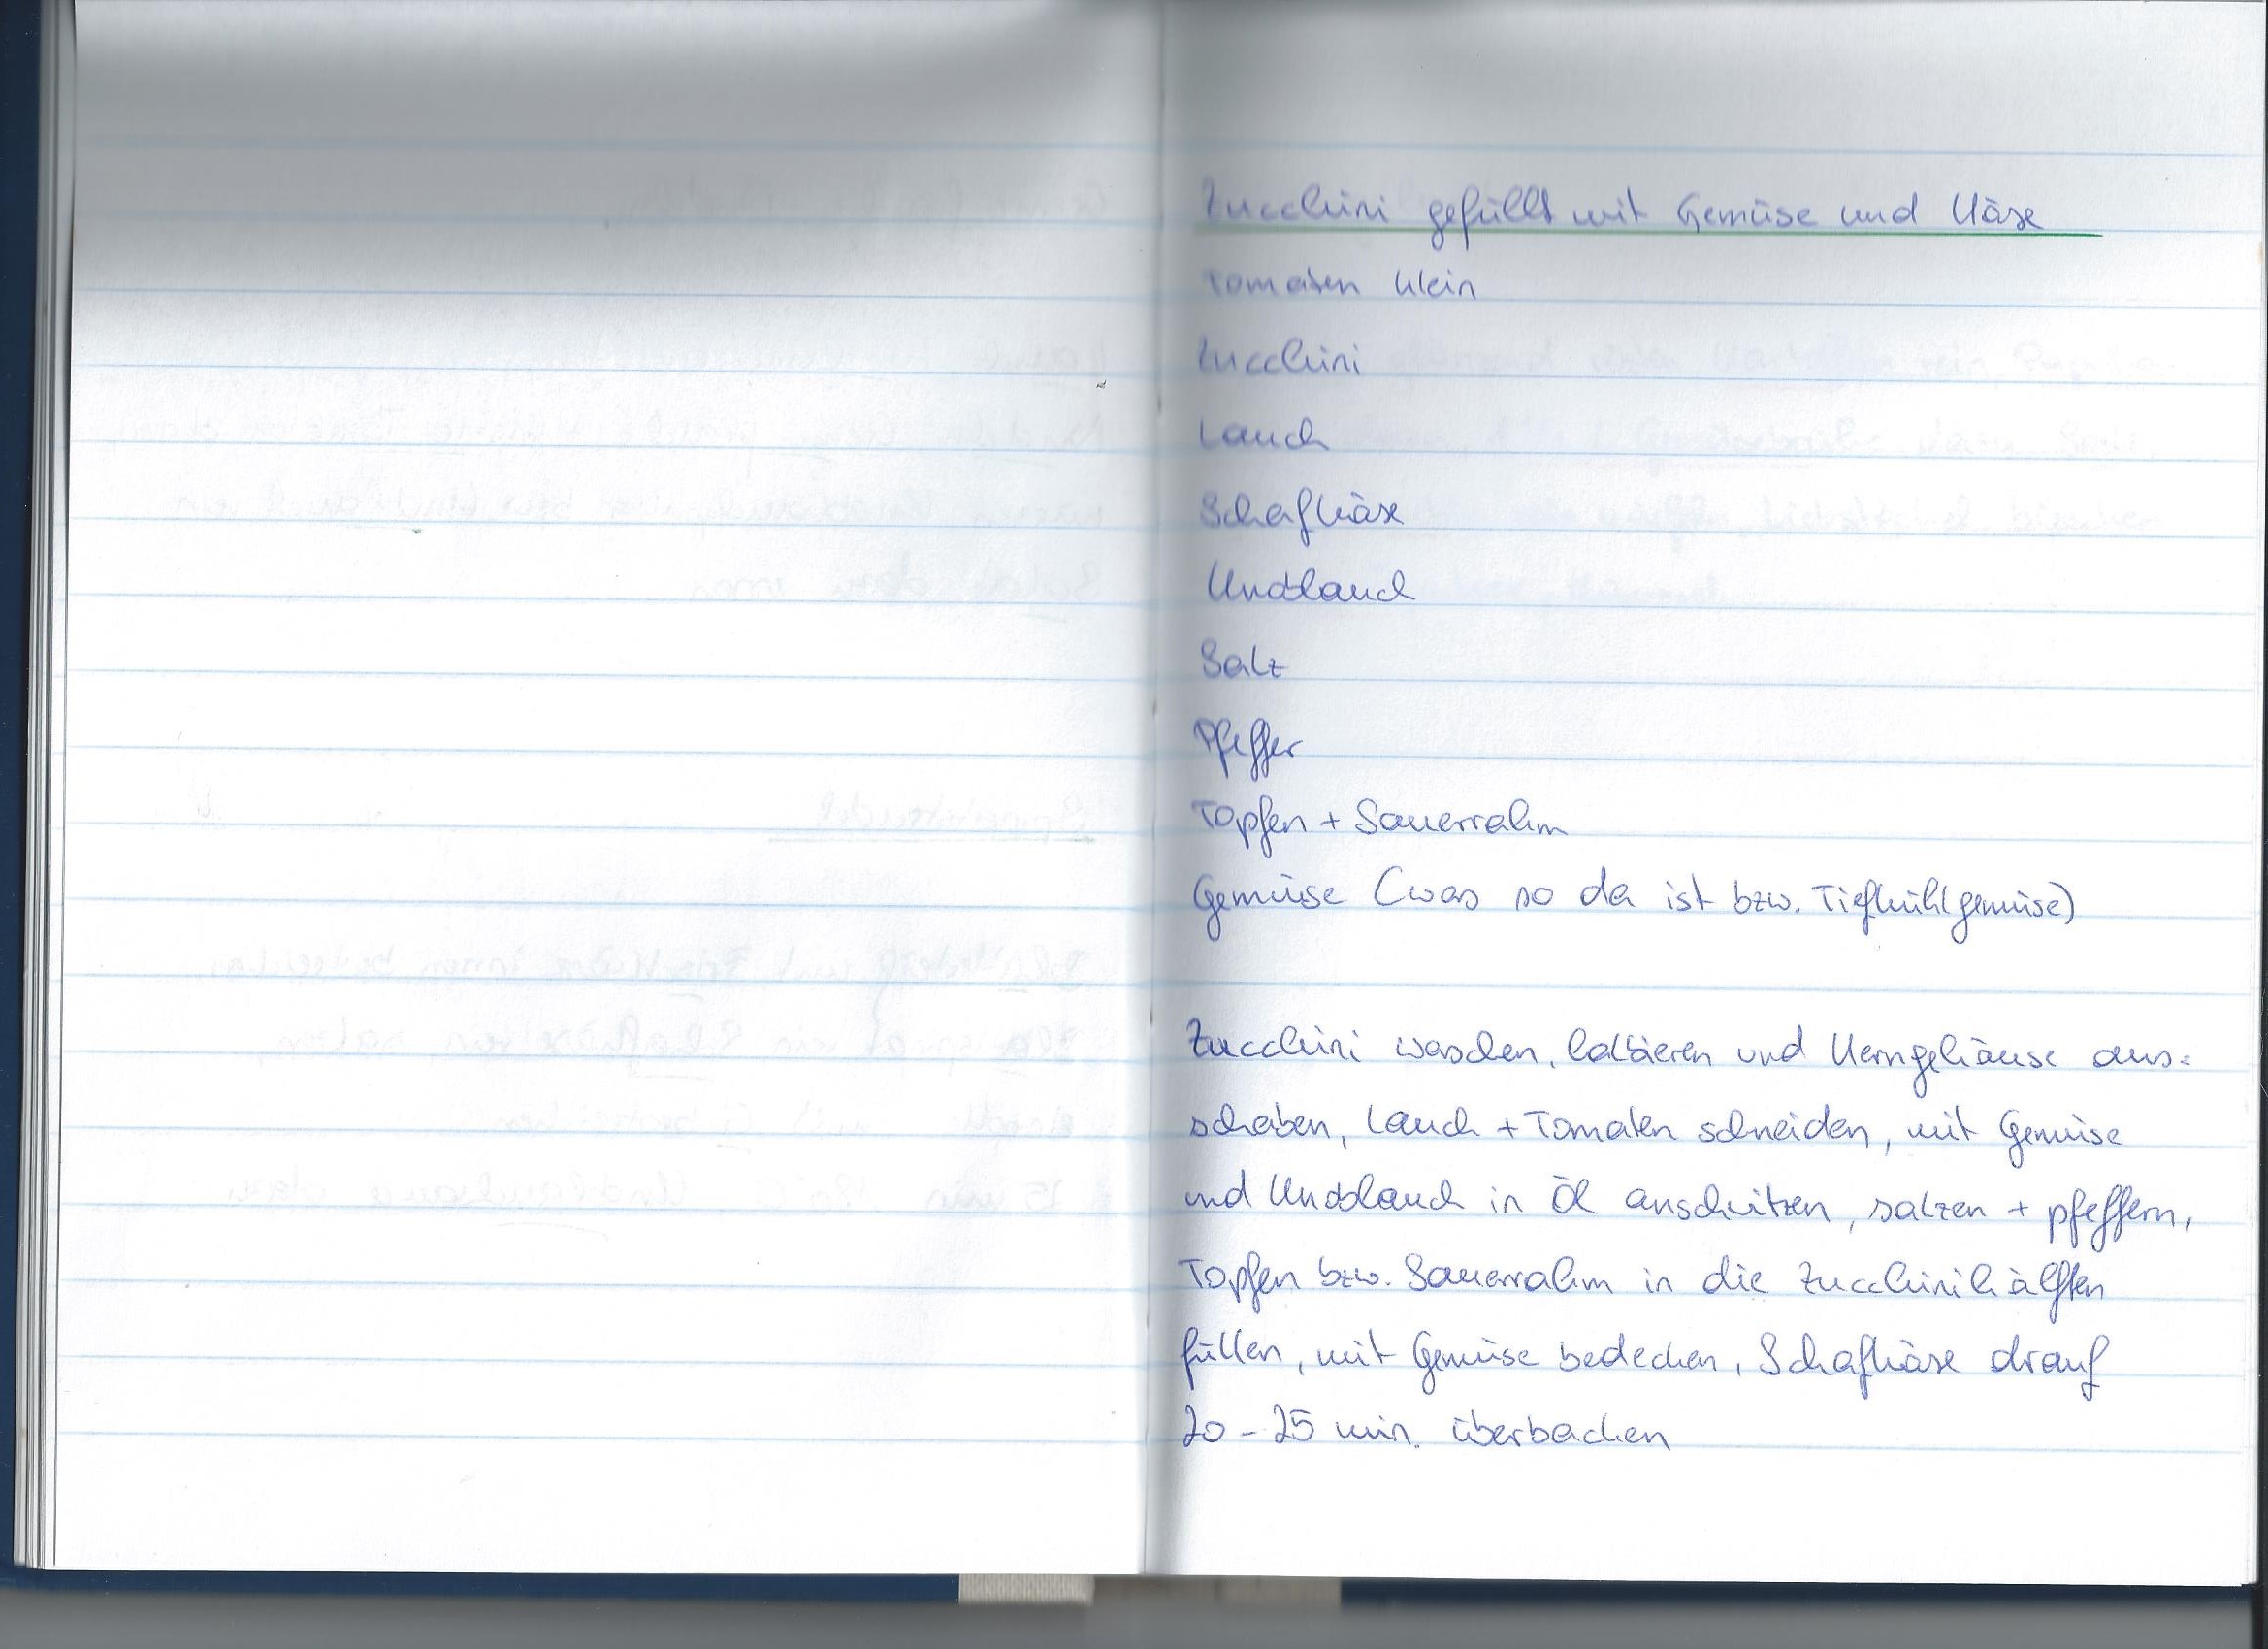 Zucchini gefüllt mit Gemüse und Käse
Tomaten klein
Zucchini
Lauch
Schafkäse
Knoblauch
Salz
Pfeffer
Topfen + Sauerrahm
Gemüse (was so da ist bzw. Tiefkühlgemüse)
Zucchini waschen, halbieren und Kerngehäuse aus=
schaben, Lauch + Tomaten schneiden, mit Gemüse
und Knoblauch in Öl anschwitzen, salzen + pfeffern,
Topfen bzw. Sauerrahm in die Zucchinihälften
füllen, mit Gemüse bedecken, Schafkäse drauf
20 - 25 min. überbacken